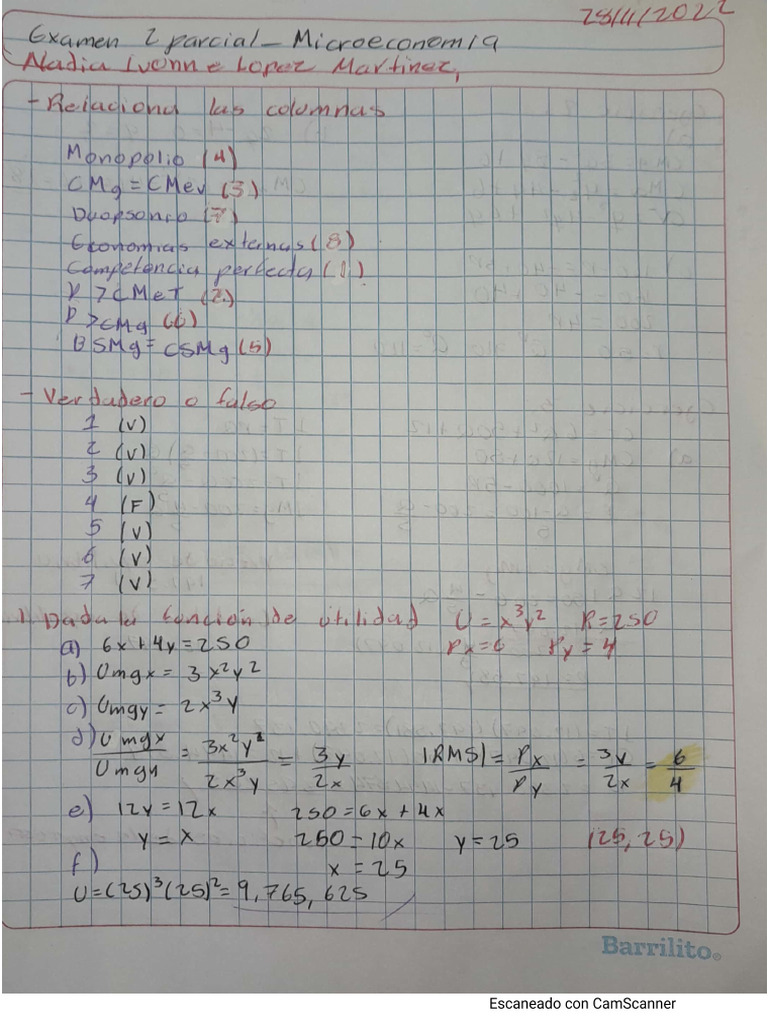 28/11/2022
Examen 2 parcial - Microeconomía
Nadia Ivonne Lopez Martinez,
- Relaciona las columnas
Monopolio (4)
CMg = CMev (3)
Duopsonio (7)
Economias externas (8)
Competencia perfecta (1)
P > CMeT (2)
P > CMg (6)
BSMg = CSMg (5)
- Verdadero o falso
1 (V)
2 (V)
3 (V)
4 (F)
5 (V)
6 (V)
7 (V)
1. Dada la función de utilidad U = x³y² R = 250
a) 6x + 4y = 250 Px = 6 Py = 4
b) Umgx = 3x²y²
c) Umgy = 2x³y
d) Umgx/Umgy = 3x²y²/2x³y = 3y/2x |RMS| = Px/Py = 3y/2x = 6/4
e) 12y = 12x 250 = 6x + 4x
y = x 250 = 10x y = 25 (25, 25)
f) x = 25
U = (25)³(25)² = 9,765,625
Barrilito®
Escaneado con CamScanner